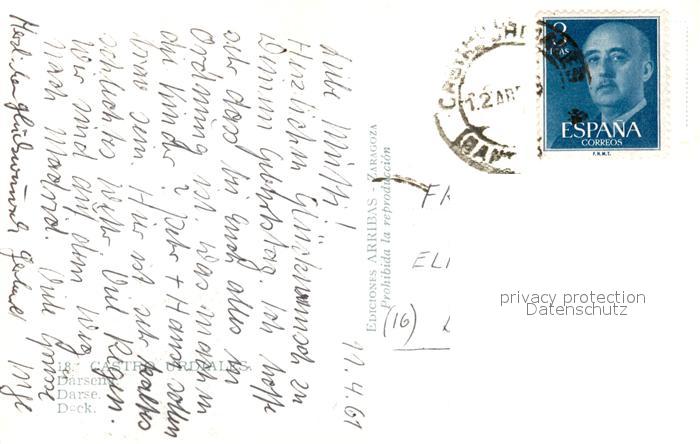 Liebe Mutti!
Herzlichen Glückwunsch zu
Deinem Geburtstag. Ich hoffe
aber dass bei Euch alles in
Ordnung ist. Was machen
die Kinder? Peter + Hans sollen
brav sein. Hier ist sehr kaltes
schlechtes Wetter. Viel Regen.
Wir sind auf dem Weg
nach Madrid. Viele Grüsse
Herzl. Glückwunsch
11.4.61
18. CASTRO URDIALES.
Dársena.
Darse.
Dock.
EDICIONES ARRIBAS - ZARAGOZA
Prohibida la reproducción
CASTRO URDIALES
12 ABR
(SANT
2
PTAS
ESPAÑA
CORREOS
F.N.M.T.
FR
ELI
(16)
privacy protection
Datenschutz